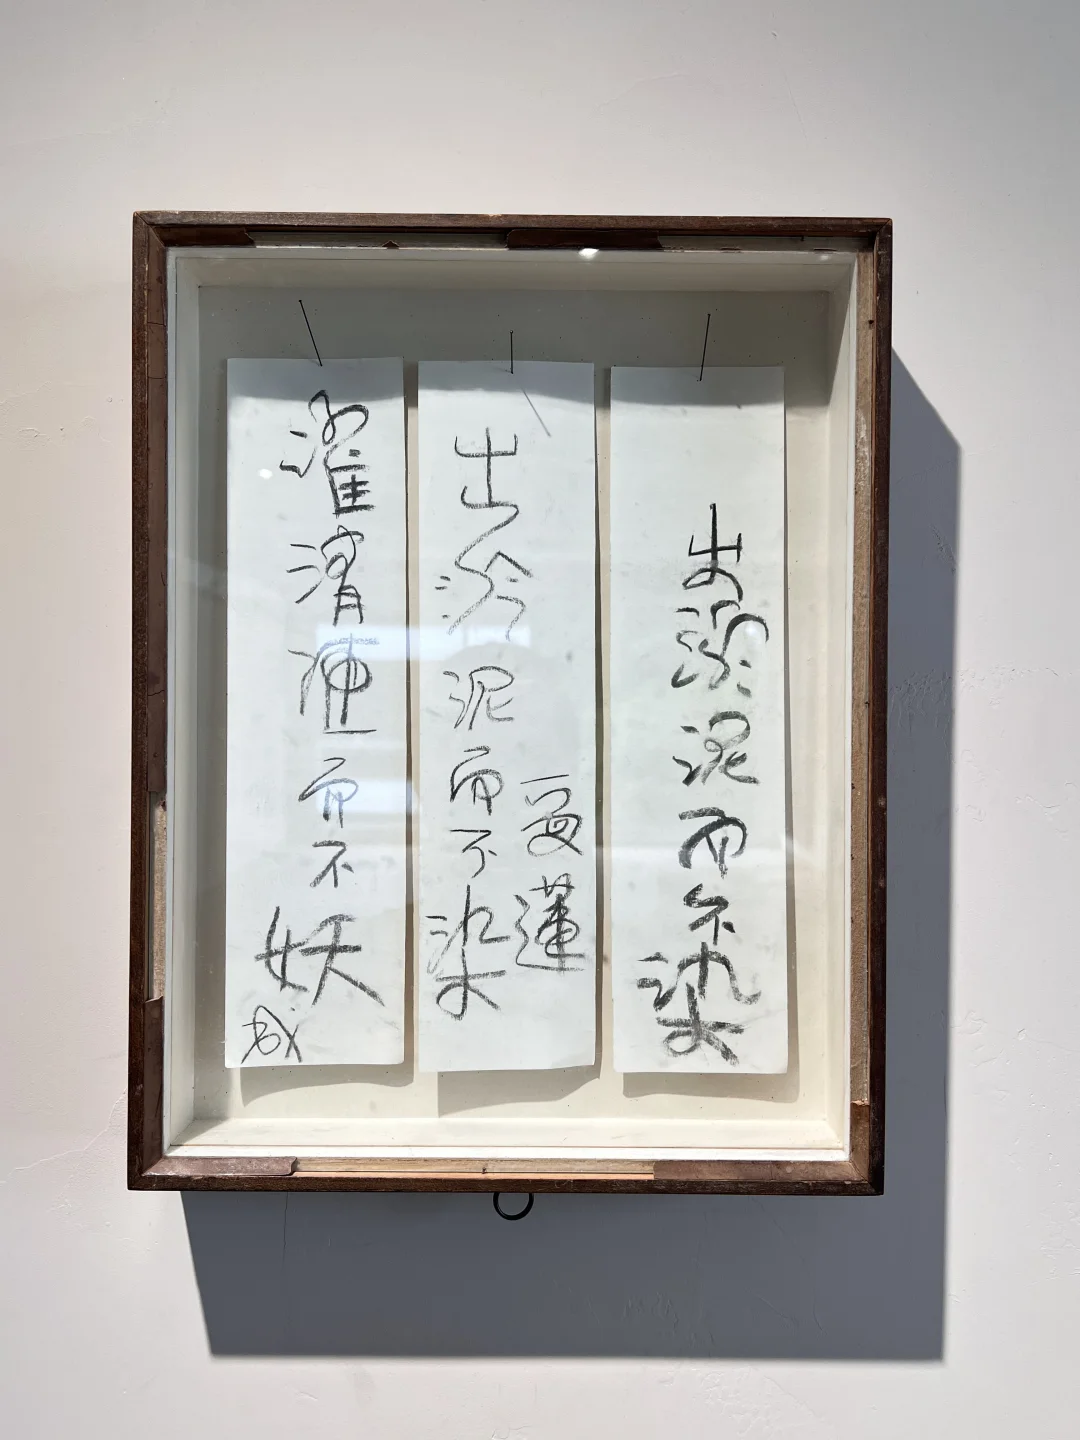 出淤泥而不染
爱蓮
出淤泥而不染
濯清涟而不妖